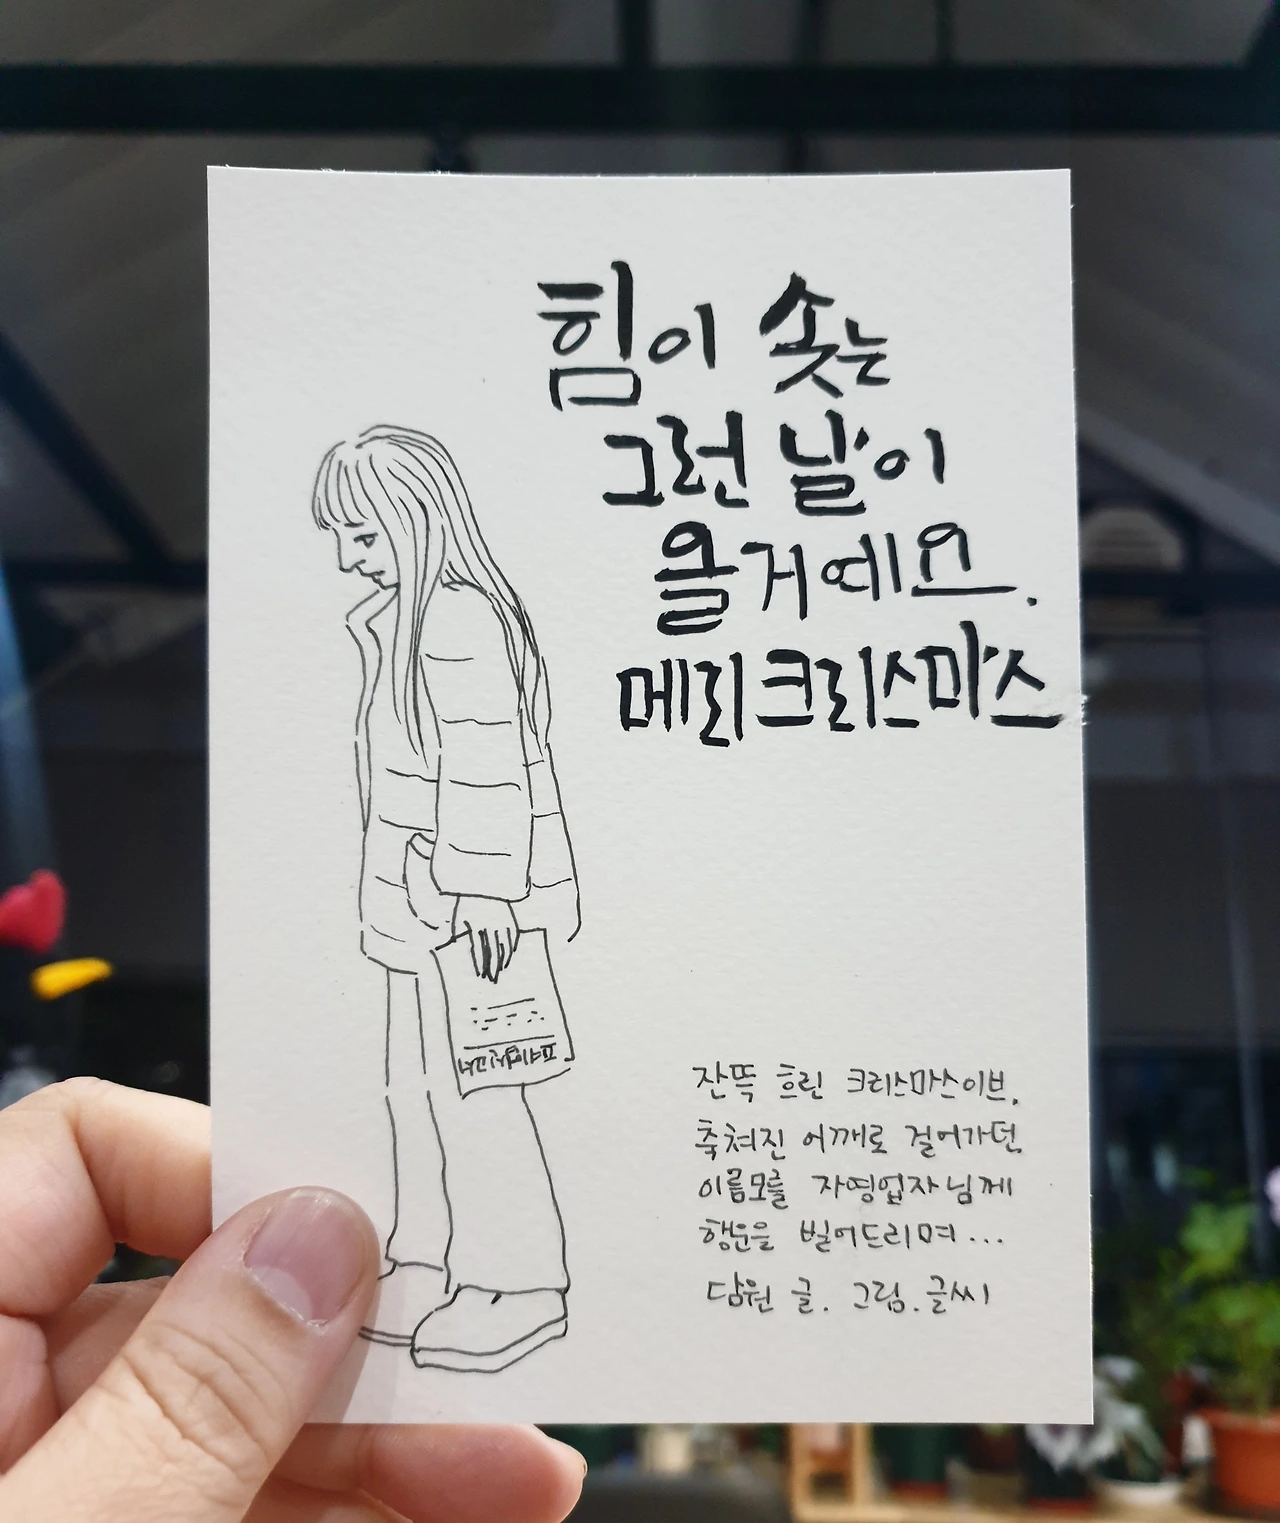 힘이 솟는
그런 날이
올거예요.
메리크리스마스
잔뜩 흐린 크리스마스이브,
축쳐진 어깨로 걸어가던
이름모를 자영업자님께
행운을 빌어드리며...
담원 글. 그림. 글씨